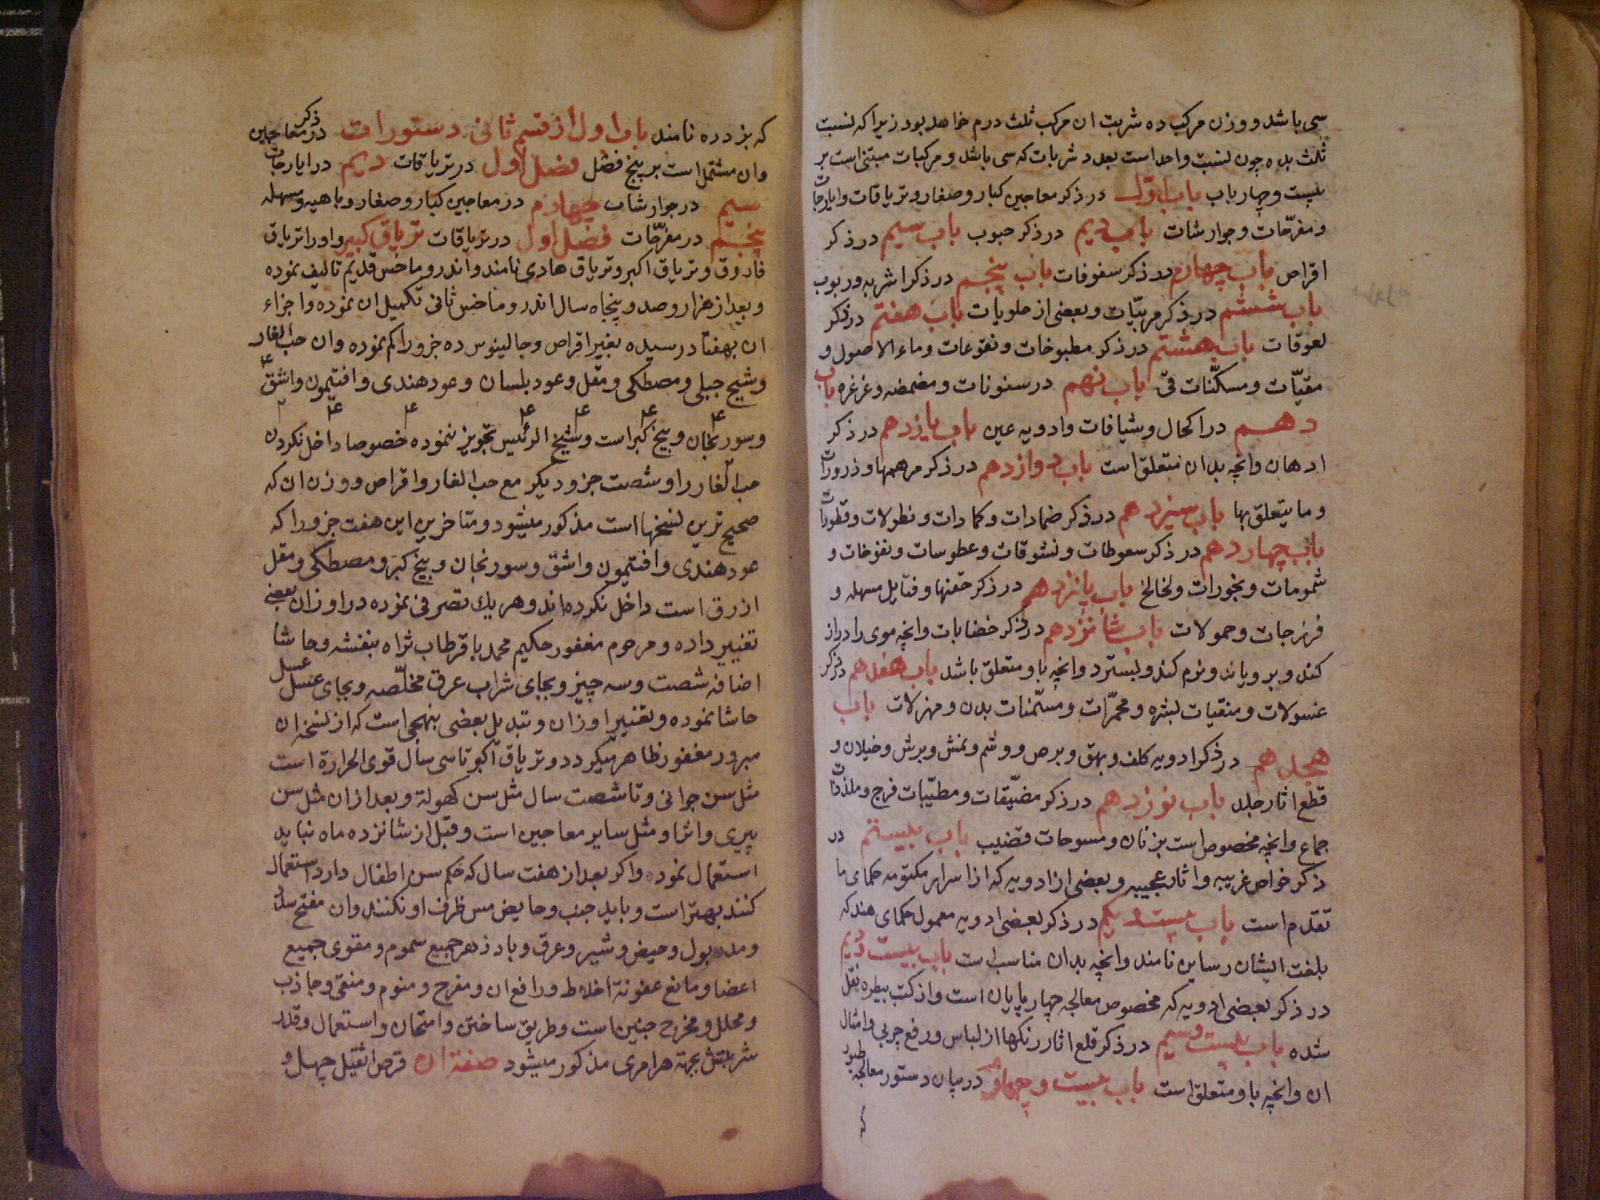 سی باشد و وزن مرکب ده شربت ان مرکب ثلث درم خواهد بود زیرا که نسبت
ثلث بده چون نسبت واحد است بعدد شربات که سی باشد و مرکبات مبتنی است بر
بیست و چهار باب باب اول در ذکر معاجین کبار و صغار و تریاقات و ایارجات
و مفرحات و جوارشات باب دویم در ذکر حبوب باب سیم در ذکر
اقراص باب چهارم در ذکر سفوفات باب پنجم در ذکر اشربه و ربوب
باب ششم در ذکر مربیات و بعضی از حلویات باب هفتم در ذکر
لعوقات باب هشتم در ذکر مطبوخات و نقوعات و ماء الاصول و
مقیات و مسکنات قی باب نهم در سنونات و مضمضه و غرغره باب
دهم در اکحال و شیافات و ادویه عین باب یازدهم در ذکر
ادهان و انچه بدان متعلق است باب دوازدهم در ذکر مرهمها و ذرورات
و ما یتعلق بها باب سیزدهم در ذکر ضمادات و کمادات و نطولات و قطورات
باب چهاردهم در ذکر سعوطات و نشوقات و عطوسات و نفوخات و
شمومات و بخورات و لخالخ باب پانزدهم در ذکر حقنها و فتایل مسهله و
فرزجات و حمولات باب شانزدهم در ذکر خضابات و انچه موی را دراز
کند و برویاند و نرم کند و بسترد و انچه باو متعلق باشد باب هفدهم در ذکر
غسولات و منقیات بشره و محمرات و مسمنات بدن و مهزلات باب
هیجدهم در ذکر ادویه کلف و بهق و برص و وشم و نمش و برش و خیلان و
قطع اثار جلد باب نوزدهم در ذکر مضیقات و مطیبات فرج و ملذذات
جماع و انچه مخصوص است بزنان و مسوحات قضیب باب بیستم در
ذکر خواص غریبه و اثار عجیبه و بعضی از ادویه که از اسرار مکتومه حکمای ما
تقدم است باب بیست و یکم در ذکر بعضی ادویه معمول حکمای هند که
بلغت ایشان رساین نامند و انچه بدان مناسب است باب بیست دویم
در ذکر بعضی ادویه که مخصوص معالجه چهارپایان است و از کتب بیطره نقل
شده باب بیست و سیم در ذکر قلع اثار رنکها از لباس و رفع چربی و امثال
ان و انچه باو متعلق است باب بیست و چهارم در بیان دستور معالجه طیور
که بزدره نامند باب اول از قسم ثانی دستورات در ذکر معاجین
وان مشتمل است بر پنج فصل فصل اول در تریاقات دویم در ایارجات
سیم در جوارشات چهارم در معاجین کبار و صغار و باهیه و مسهله
پنجم در مفرحات فصل اول در تریاقات تریاق کبیر و او را تریاق
فاروق و تریاق اکبر و تریاق هادی نامند و اندروماخس قدیم تالیف نموده
و بعد از هزار و صد و پنجاه سال اندروماخس ثانی تکمیل ان نموده و اجزاء
ان بهفتاد رسیده بغیر اقراص و جالینوس ده جزو را کم نموده و ان حب الغار
و شیح جبلی و مصطکی و مقل و عود بلسان و عود هندی و افتیمون و اشق
و سورنجان و بیخ کبر است و شیخ الرئیس تجویز ننموده خصوصا داخل نکردن
حب الغار را و شصت جزو دیکر مع حب الغار و اقراص و وزن ان که
صحیح ترین نسخها است مذکور میشود و متاخرین این هفت جزو را که
عود هندی و افتیمون و اشق و سورنجان و بیخ کبر و مصطکی و مقل
ازرق است داخل نکرده اند و هر یک تصرفی نموده در اوزان بعضی
تغییر داده و مرحوم مغفور حکیم محمد باقر طاب ثراه بنفشه و حاشا
اضافه شصت و سه چیز و بجای شراب عرق مخلصه و بجای عسل عسل
حاشا نموده و تغییر اوزان و تبدیل بعضی بنهجی است که از نسخه ان
مبرور مغفور ظاهر میکردد و تریاق اکبر تا سی سال قوی الحرارة است
مثل سن جوانی و تا شصت سال مثل سن کهولة و بعد از ان مثل سن
پیری و اثر او مثل سایر معاجین است و قبل از شانزده ماه نباید
استعمال نموده و اکر بعد از هفت سال که حکم سن اطفال دارد استعمال
کنند بهتر است و باید جنب و حایض مس ظرف او نکنند و ان مفتح سدد
و مدر بول و حیض و شیر و عرق و بادزهر جمیع سموم و مقوی جمیع
اعضا و مانع عفونة اخلاط و رافع ان و مفرح و منوم و منقی و جاذب
و محلل و مخرج جنین است و طریق ساختن و امتحان و استعمال و قدر
شربتش بجهة هر امری مذکور میشود صفة ان قرص اشقیل چهل و